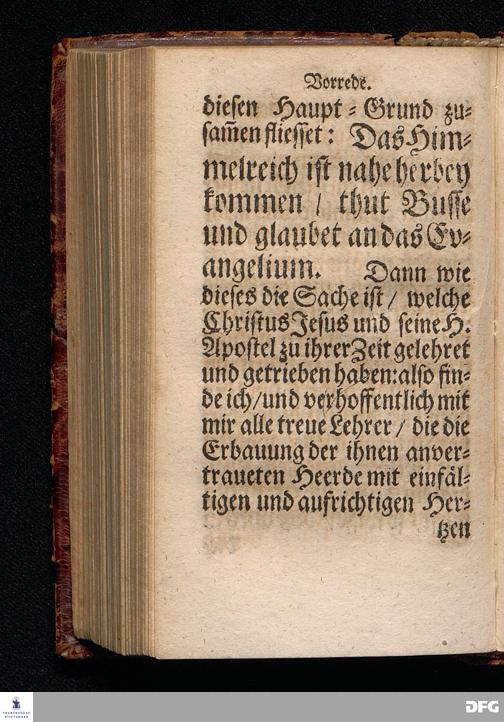 Vorrede.
diesen Haupt⸗Grund zu⸗
sam̃en fliesset: Das Him⸗
melreich ist nahe herbey
kommen / thut Busse
und glaubet an das Ev⸗
angelium. Dann wie
dieses die Sache ist / welche
Christus Jesus und seine H.
Apostel zu ihrer Zeit gelehret
und getrieben haben: also fin⸗
de ich / und verhoffentlich mit
mir alle treue Lehrer / die die
Erbauung der ihnen anver⸗
traueten Heerde mit einfäl⸗
tigen und aufrichtigen Her⸗
tzen
FRANCKESCHE
STIFTUNGEN
DFG